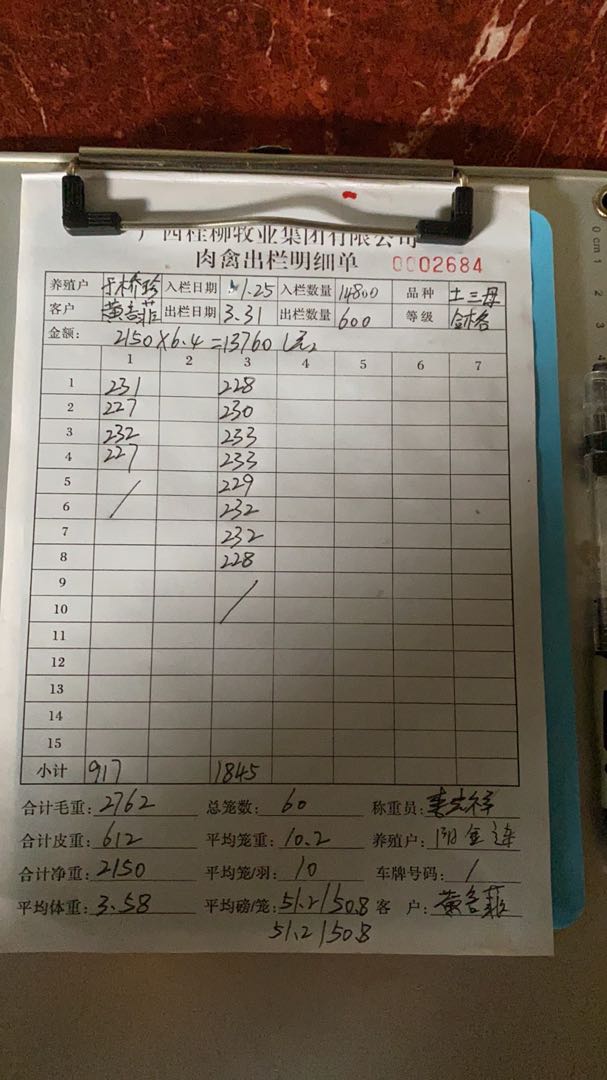 广西桂柳牧业集团有限公司
肉禽出栏明细单 0002684
养殖户 入栏日期 1.25 入栏数量 14800 品种 土三母
客户 出栏日期 3.31 出栏数量 600 等级 合格
金额: 2150×6.4=13760
1 2 3 4 5 6 7
1 231 228
2 227 230
3 232 233
4 227 233
5 / 229
6 232
7 232
8 228
9 /
10
11
12
13
14
15
小计 917 1845
合计毛重: 2762 总笼数: 60 称重员:
合计皮重: 612 平均笼重: 10.2 养殖户:
合计净重: 2150 平均笼/羽: 10 车牌号码: /
平均体重: 3.58 平均磅/笼: 51.2/50.8 客 户:
51.2/50.8
0 cm 1